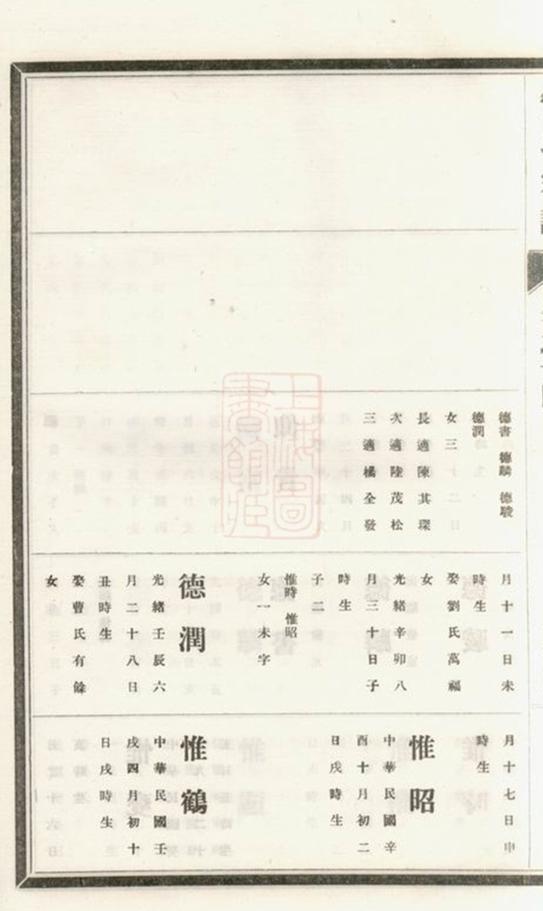 德書 德驎 德駿
德潤
女三
長適陳其琛
次適陸茂松
三適橘全發
月十一日未
時生
娶劉氏萬福
女
光緒辛卯八
月三十日子
時生
子二
惟時 惟昭
女一未字
德潤
光緒壬辰六
月二十八日
丑時生
娶曹氏有餘
女
月十七日申
時生
惟昭
中華民國辛
酉十月初二
日戌時生
惟鶴
中華民國壬
戌四月初十
日戌時生
上海圖書館藏